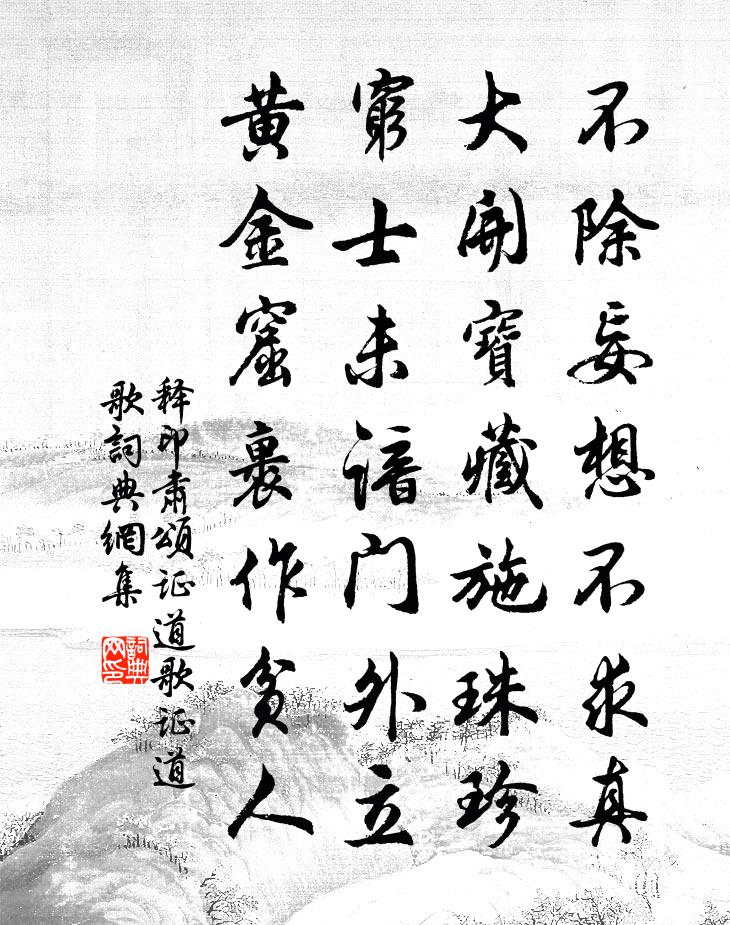 不除妄想不求真
大開寶藏施珠珍
窮士未諳門外立
黃金窟裏作貧人
释印肃頌证道歌证道
歌詞典網集
詞典
网印